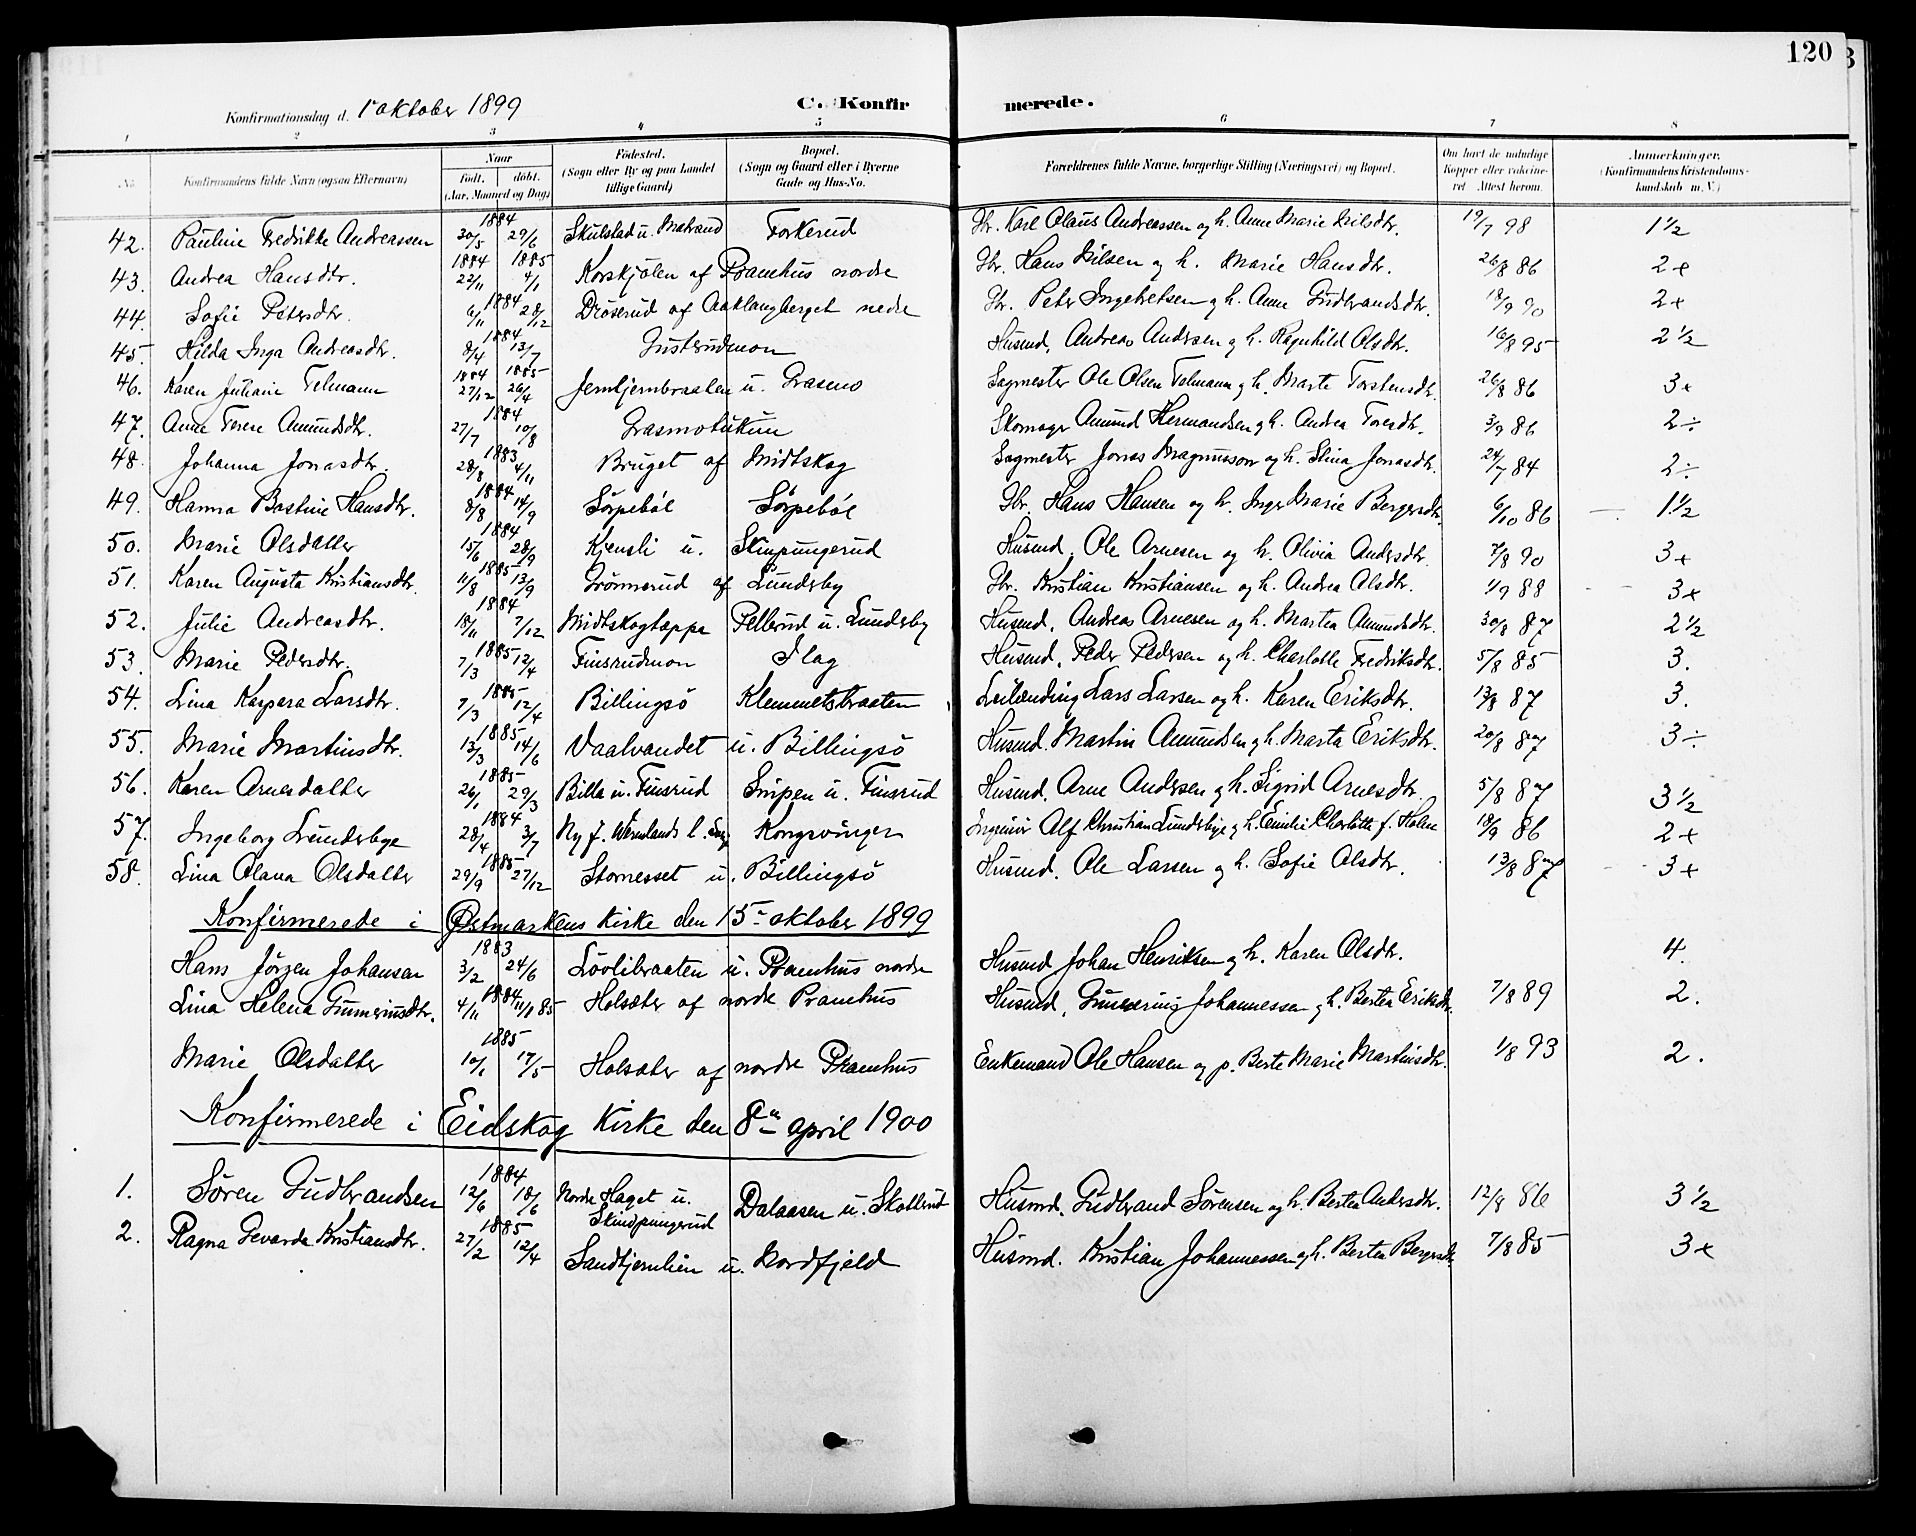 120
Konfirmationsdag d. 1ᵉ oktober 1899 C. Konfirmerede.
1 2 3 4 5 6 7 8
No. Konfirmandens fulde Navn (ogsaa Efternavn) Naar født. døbt. (Aar, Maaned og Dag) Fødested. (Sogn eller By og paa Landet tillige Gaard) Bopæl. (Sogn og Gaard eller i Byerne Gade og Hus-No. Forældrenes fulde Navne, borgerlige Stilling (Næringsvei) og Bopæl. Om havt de naturlige Kopper eller vakcineret. Attest herom. Anmærkninger. (Konfirmandens Kristendomskundskab m. V.)
42. Pauline Fredrikke Andreassen 1884 30/5 29/6 Skulstad u. Matrand Forkerud Gbr. Karl Olaus Andreassen og h. Anne Marie Nilsdtr. 19/7 98 1½
43. Andrea Hansdtr. 1884 22/11 1885 4/1 Korskjølen af Pramhus nordre Gbr. Hans Nilsen og h. Marie Hansdtr. 26/8 86 2+
44. Sofie Petersdtr. 1884 6/11 28/12 Drøserud af Aaklangberget nedre Gbr. Peter Ingebretsen og h. Anne Gudbrandsdtr. 18/9 90 2+
45. Hilda Inga Andreasdtr. 1884 8/4 13/7 Gusterudmon Husmd. Andreas Andersen og h. Ragnhild Olsdtr. 16/8 95 2½
46. Karen Juliane Telmann 1884 27/12 1885 26/4 Jerntjernbraaten u. Grasmo Sagmester Ole Olsen Telmann og h. Marte Torstensdtr. 26/8 86 3+
47. Anne Terese Amundsdtr. 1884 27/7 10/8 Grasmotukun Skomager Amund Hermandsen og h. Andrea Toresdtr. 3/9 86 2÷
48. Johanna Jonasdtr. 1883 28/8 4/11 Bruget af Midtskog Sagmester Jonas Magnusson og h. Stina Jonasdtr. 24/7 84 2÷
49. Hanna Bastine Hansdtr. 1884 8/8 14/9 Sørpebøl Sørpebøl Gbr. Hans Hansen og h. Inger Marie Bergersdtr. 6/10 86 1½
50. Marie Olsdatter 1884 15/6 28/9 Kjensli u. Skinpungerud Husmd. Ole Arnesen og h. Olivia Andersdtr. 7/8 90 3+
51. Karen Augusta Kristiansdtr. 1885 11/8 13/9 Grønnerud af Lundsby Gbr. Kristian Kristiansen og h. Andrea Olsdtr. 1/9 88 3+
52. Julie Andreasdtr. 1884 18/11 7/12 Midtskogtæppe Pellerud u. Lundsby Husmd. Andreas Arnesen og h. Martea Amundsdtr. 30/8 87 2½
53. Marie Pedersdtr. 1885 7/3 12/4 Finsrudmon Flag Husmd. Peder Pedersen og h. Charlotte Fredriksdtr. 5/8 85 3.
54. Lina Kaspara Larsdtr. 1885 7/3 12/4 Billingsø Klemmetsbraaten Leilænding Lars Larsen og h. Karen Eriksdtr. 13/8 87 3.
55. Marie Martinsdtr. 1885 13/3 14/6 Vaalvandet u. Billingsø Husmd. Martin Amundsen og h. Marta Eriksdtr. 20/8 87 3÷
56. Karen Arnesdatter 1885 26/1 29/3 Billa u. Finsrud Snipen u. Finsrud Husmd. Arne Andersen og h. Sigrid Arnesdtr. 5/8 87 3½
57. Ingeborg Lundsbye 1884 28/4 3/7 Ny f. Wermlands l. Kongsvinger Ingeniør Alf Christian Lundsbye og h. Emilie Charlotte f. Holm 18/9 86 2+
58. Lina Olana Olsdatter 1885 29/9 27/12 Stornesset u. Billingsø Husmd. Ole Larsen og h. Sofie Olsdtr. 13/8 87 3+
Konfirmerede i Østmarkens Kirke den 15ᵉ oktober 1899
Hans Jørgen Johansen 1883 3/2 24/6 Løvlibraaten u. Pramhus nordre Husmd Johan Henriksen og h. Karen Olsdtr. 4.
Lina Helena Gunneriusdtr. 1884 4/11 11/1 85 Holsæter af nordre Pramhus Husmd. Gunnerius Johannessen og h. Bertea Eriksdtr. 7/8 89 2.
Marie Olsdatter 1885 10/1 17/5 Holsæter af nordre Pramhus Enkemand Ole Hansen og p. Berte Marie Martinsdtr. 1/8 93 2.
Konfirmerede i Eidskog Kirke den 8ᵈᵉ april 1900
1. Søren Gudbrandsen 1884 12/6 18/6 Nordre Haget u. Skindpungerud Dalaasen u. Skotterud Husmd. Gudbrand Sørensen og h. Bertea Andersdtr. 12/8 86 3½
2. Ragna Gevarda Kristiansdtr. 1885 27/2 12/4 Sandtjernlien u. Nordfjeld Husmd. Kristian Johannessen og h. Bertea Bergersdtr. 7/8 85 3+